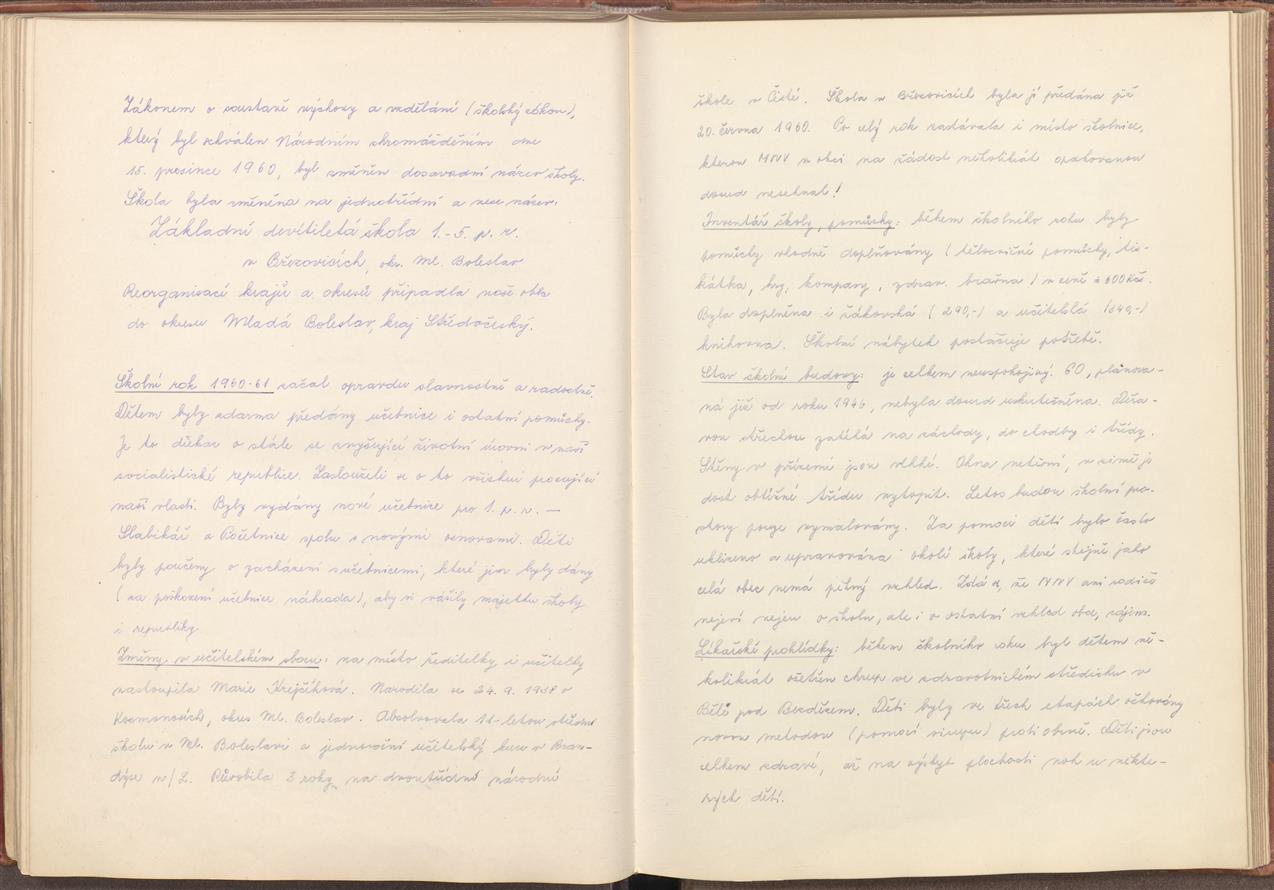 Zákonem o soustavě výchovy a vzdělání (školský zákon),
který byl schválen Národním shromážděním dne
15. prosince 1960, byl změněn dosavadní název školy.
Škola byla změněna na jednotřídní a nese název:
Základní devítiletá škola 1.-5. p. r.
v Březovicích, okr. Ml. Boleslav
Reorganisací krajů a okresů připadla naše obec
do okresu Mladá Boleslav, kraj Středočeský.
Školní rok 1960-61 začal opravdu slavnostně a radostně.
Dětem byly zdarma předány učebnice i ostatní pomůcky.
Je to důkaz o stále se zvyšující životní úrovni v naší
socialistické republice. Zasloužili se o to všichni pracující
naší vlasti. Byly vydány nové učebnice pro 1. p. r. —
Slabikář a Početnice spolu s novými osnovami. Děti
byly poučeny o zacházení s učebnicemi, které jim byly dány
(za poškození učebnice náhrada), aby si vážily majetku školy
i republiky.
Změny v učitelském sboru: na místo ředitelky i učitelky
nastoupila Marie Krejčíková. Narodila se 24. 9. 1938 v
Kosmonosích, okres Ml. Boleslav. Absolvovala 11-letou střední
školu v Ml. Boleslavi a jednoroční učitelský kurs v Bran-
dýse n/L. Působila 2 roky na dvoutřídní národní
škole v Čisté. Škola v Březovicích byla jí předána již
20. června 1960. Po celý rok zastávala i místo školnice,
kterou MNV v obci na žádost několikrát opakovanou
dosud nesehnal!
Inventář školy, pomůcky: během školního roku byly
pomůcky vhodně doplňovány (tělocvičné pomůcky, tis-
kátka, hry, kompasy, zdrav. brašna) v ceně 600 Kčs.
Byla doplněna i žákovská (290,-) a učitelská (640,-)
knihovna. Školní nábytek postačuje potřebě.
Stav školní budovy: je celkem neuspokojivý. GO, plánova-
ná již od roku 1946, nebyla dosud uskutečněna. Děra-
vou střechou zatéká na záchody, do chodby i třídy.
Stěny v přízemí jsou vlhké. Okna netěsní, v zimě je
dost obtížné třídu vytopit. Letos budou školní pro-
story pouze vymalovány. Za pomoci dětí bylo často
uklizeno a upravováno okolí školy, které stejně jako
celá obec nemá pěkný vzhled. Zdá se, že MNV ani rodiče
nejeví nejen o školu, ale i o ostatní vzhled obce, zájem.
Lékařské prohlídky: během školního roku byl dětem ně-
kolikrát ošetřen chrup ve zdravotnickém středisku v
Bělé pod Bezdězem. Děti byly ve třech etapách očkovány
novou metodou (pomocí sirupu) proti obrně. Děti jsou
celkem zdravé, až na výskyt plochosti noh u někte-
rých dětí.